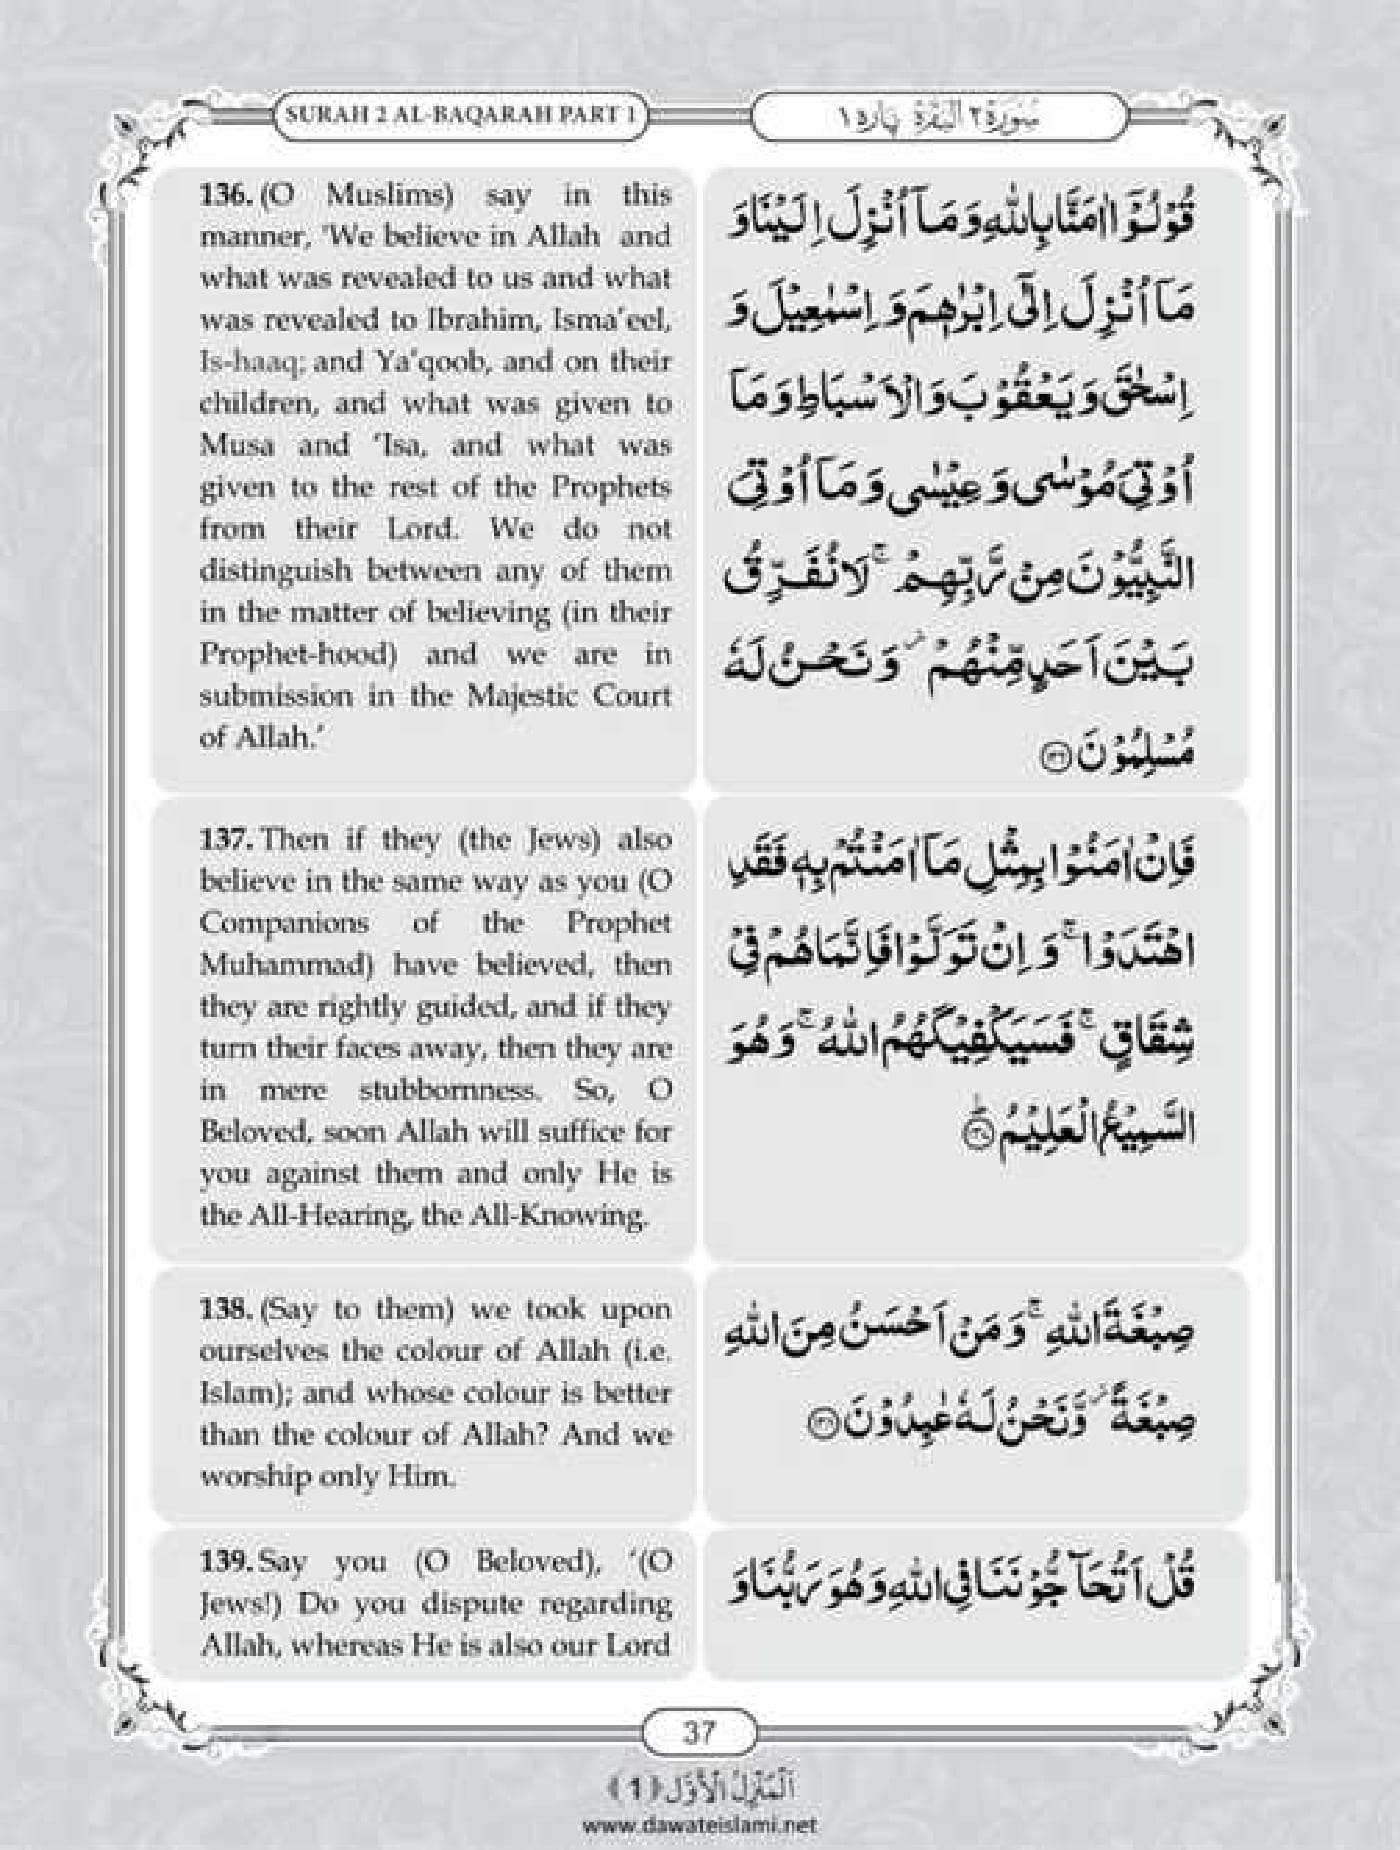 SURAH 2 AL-BAQARAH PART 1
سُوْرَةُ ٢ الْبَقَرَةِ پارہ ١
136. (O Muslims) say in this
manner, 'We believe in Allah and
what was revealed to us and what
was revealed to Ibrahim, Isma'eel,
Is-haaq; and Ya'qoob, and on their
children, and what was given to
Musa and 'Isa, and what was
given to the rest of the Prophets
from their Lord. We do not
distinguish between any of them
in the matter of believing (in their
Prophet-hood) and we are in
submission in the Majestic Court
of Allah.'
قُوْلُوْۤا اٰمَنَّا بِاللّٰهِ وَ مَاۤ اُنْزِلَ اِلَیْنَا وَ
مَاۤ اُنْزِلَ اِلٰۤى اِبْرٰهٖمَ وَ اِسْمٰعِیْلَ وَ
اِسْحٰقَ وَ یَعْقُوْبَ وَ الْاَسْبَاطِ وَ مَاۤ
اُوْتِیَ مُوْسٰى وَ عِیْسٰى وَ مَاۤ اُوْتِیَ
النَّبِیُّوْنَ مِنْ رَّبِّهِمْ ۚ لَا نُفَرِّقُ
بَیْنَ اَحَدٍ مِّنْهُمْ ۖ وَ نَحْنُ لَهٗ
مُسْلِمُوْنَ ﴿۱۳۶﴾
137. Then if they (the Jews) also
believe in the same way as you (O
Companions of the Prophet
Muhammad) have believed, then
they are rightly guided, and if they
turn their faces away, then they are
in mere stubbornness. So, O
Beloved, soon Allah will suffice for
you against them and only He is
the All-Hearing, the All-Knowing.
فَاِنْ اٰمَنُوْا بِمِثْلِ مَاۤ اٰمَنْتُمْ بِهٖ فَقَدِ
اهْتَدَوْا ۚ وَ اِنْ تَوَلَّوْا فَاِنَّمَا هُمْ فِیْ
شِقَاقٍ ۚ فَسَیَكْفِیْكَهُمُ اللّٰهُ ۚ وَ هُوَ
السَّمِیْعُ الْعَلِیْمُ ﴿۱۳۷﴾
138. (Say to them) we took upon
ourselves the colour of Allah (i.e.
Islam); and whose colour is better
than the colour of Allah? And we
worship only Him.
صِبْغَةَ اللّٰهِ ۚ وَ مَنْ اَحْسَنُ مِنَ اللّٰهِ
صِبْغَةً ۖ وَّ نَحْنُ لَهٗ عٰبِدُوْنَ ﴿۱۳۸﴾
139. Say you (O Beloved), '(O
Jews!) Do you dispute regarding
Allah, whereas He is also our Lord
قُلْ اَتُحَآجُّوْنَنَا فِی اللّٰهِ وَ هُوَ رَبُّنَا وَ
37
اَلْمَنْزِلُ الْاَوَّل ﴿1﴾
www.dawateislami.net